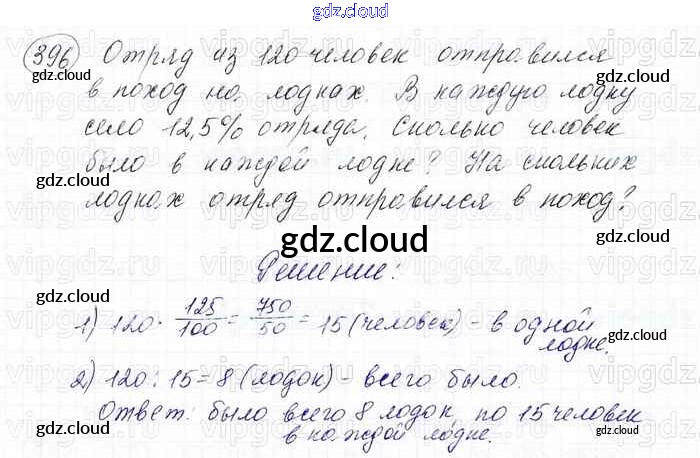 gdz.cloud
396 Отряд из 120 человек отправился
в поход на лодках. В каждую лодку
село 12,5% отряда. Сколько человек
было в каждой лодке? На скольких
лодках отряд отправился в поход?
gdz.cloud
Решение:
1) 120 · 125/100 = 750/50 = 15 (человек) - в одной
лодке.
2) 120 : 15 = 8 (лодок) - всего было.
Ответ: было всего 8 лодок, по 15 человек
в каждой лодке.